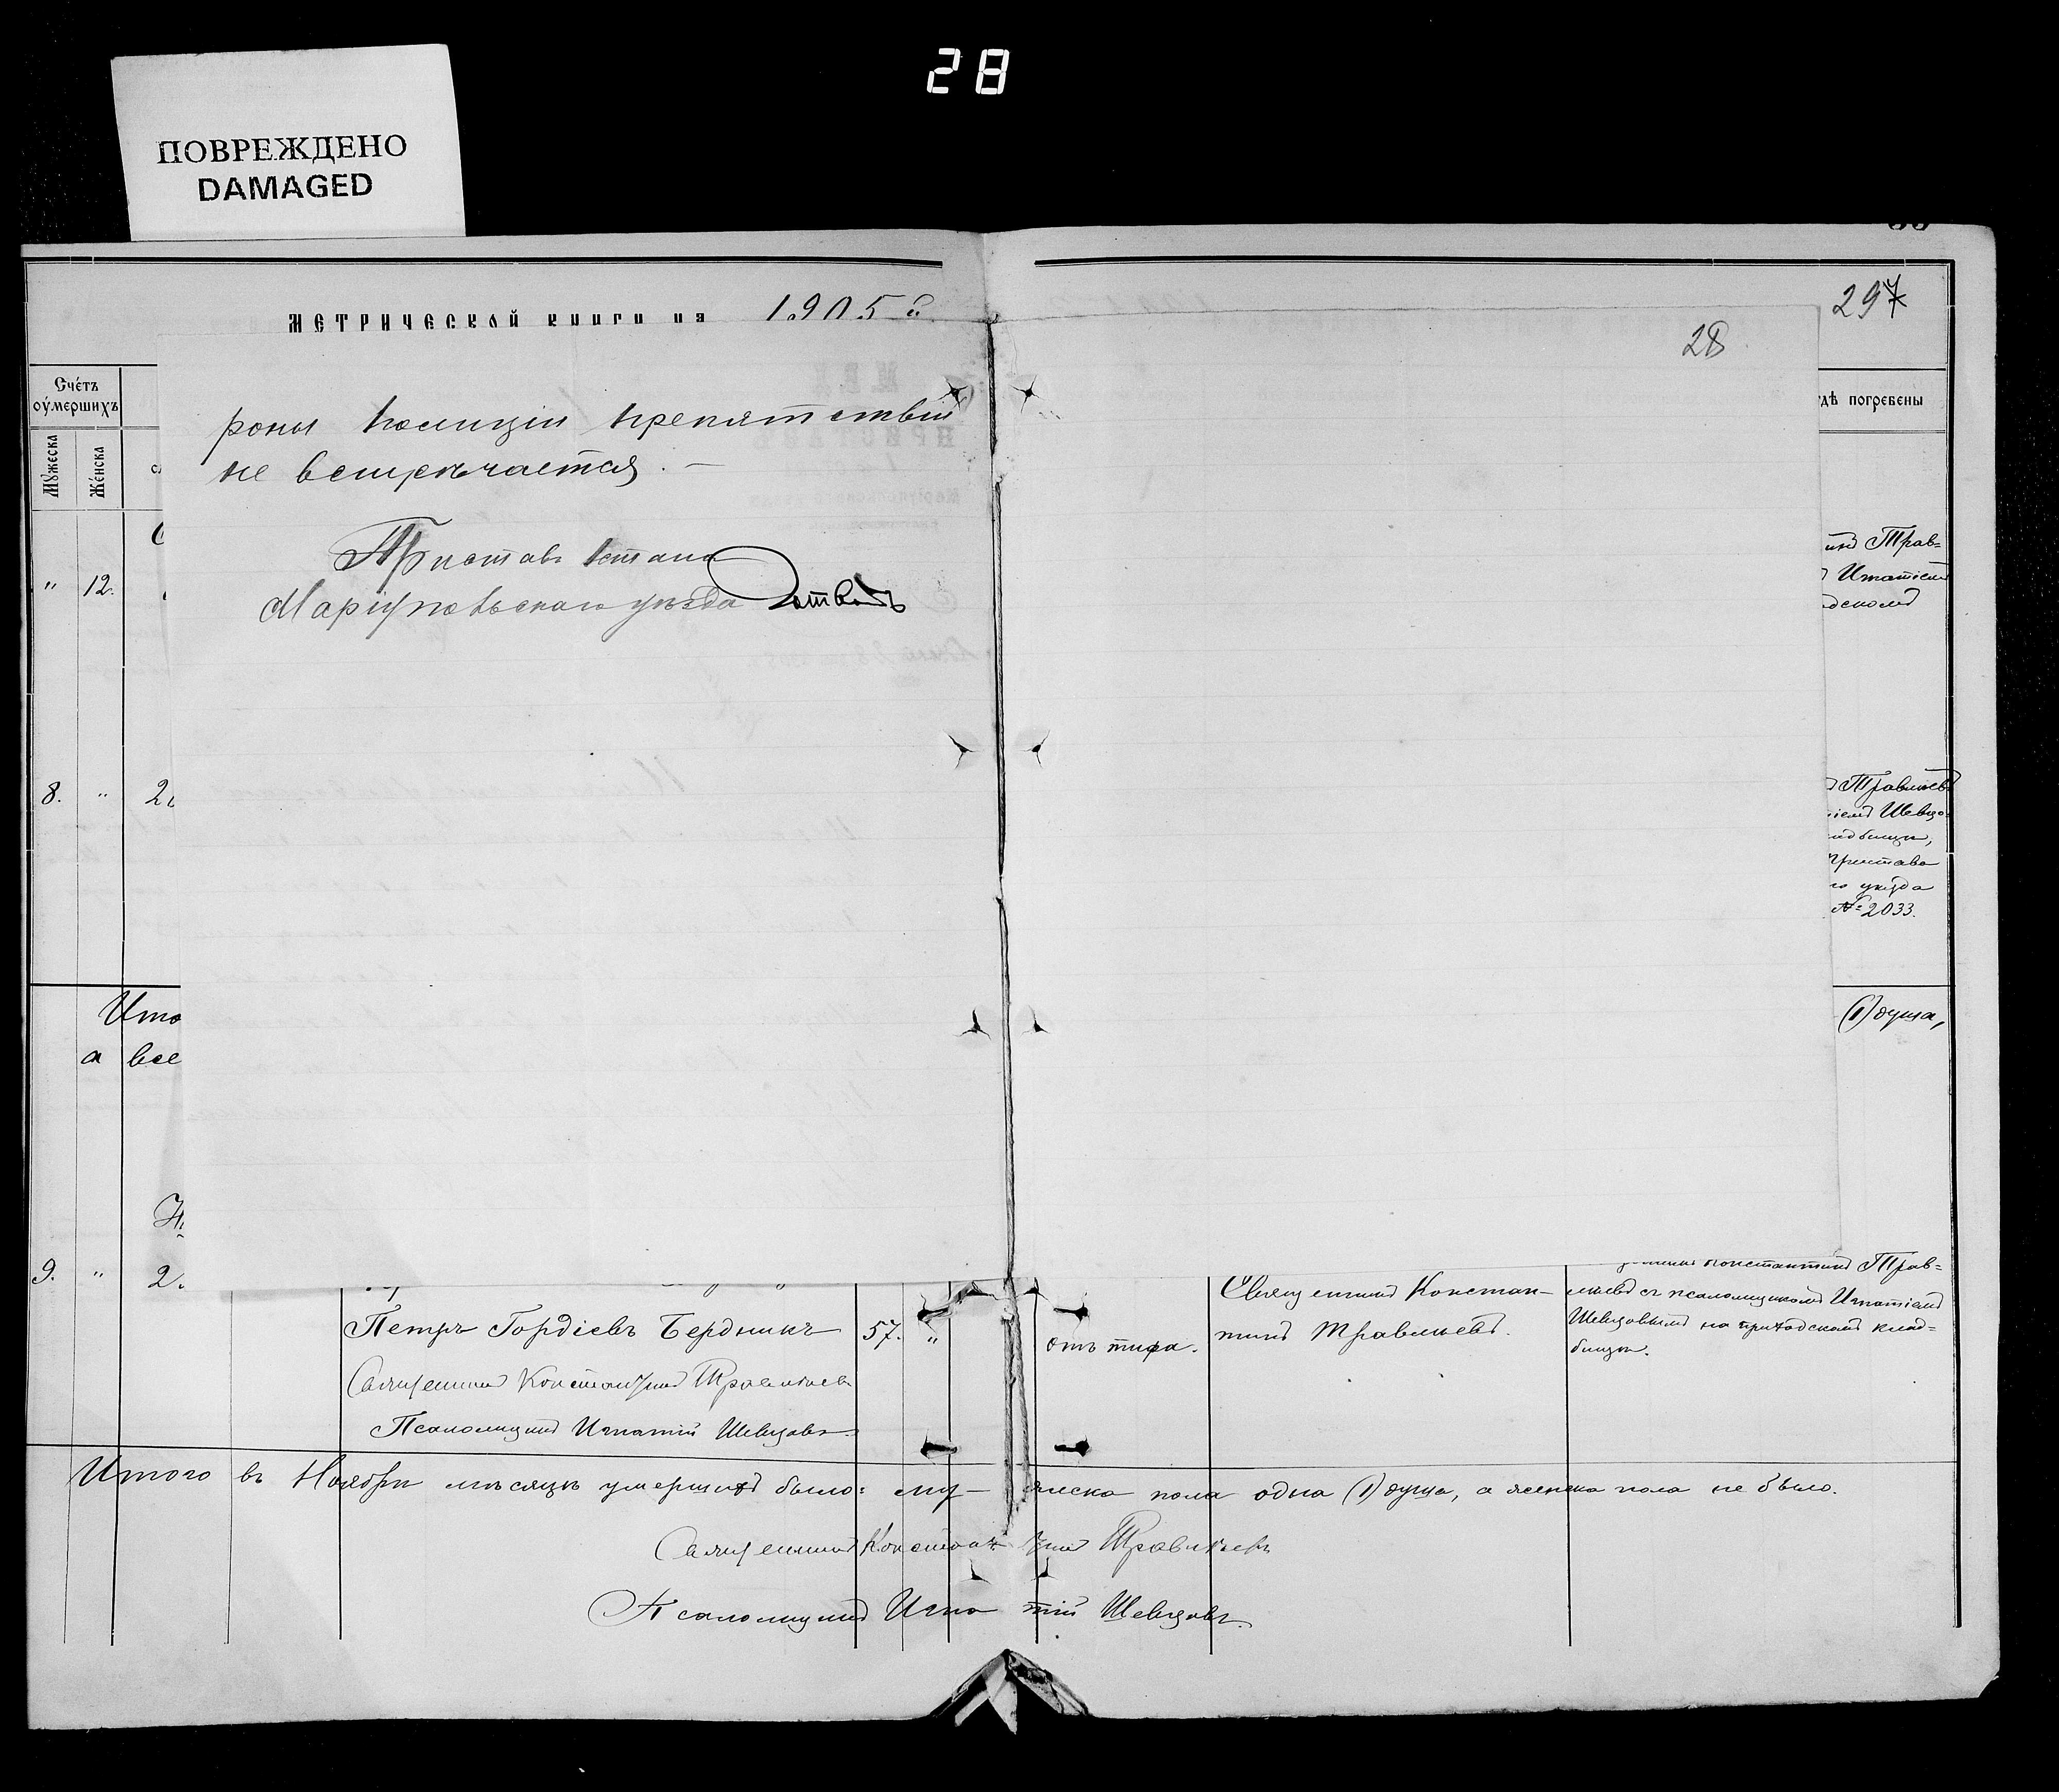 28
ПОВРЕЖДЕНО
DAMAGED
МЕТРИЧЕСКОЙ КНИГИ НА 1905 г.
297
28
Счétъ
оумершихъ
Мужеска
Женска
гдѣ погребены
роны полиціи препятствій
не встрѣчается. —
Приставъ 1 стана
Маріупольскаго уѣзда
" 12.
Трав=
Игнатіемъ
дскомъ
8. " 2
Травлѣевъ
іемъ Шевцо
ладбищѣ,
Пристава
го уѣзда
№ 2033.
Ито
(1) душа,
а все
9. " 2.
Константинъ Трав=
Петръ Гордіевъ Бердникъ
57. "
отъ тифа.
Священникъ Констан-
тинъ Травлѣевъ.
лѣевъ съ псаломщикомъ Игнатіемъ
Шевцовымъ на приходскомъ клад=
бищѣ.
Священникъ Константинъ Травлѣевъ
Псаломщикъ Игнатій Шевцовъ.
Итого въ Ноябрѣ мѣсяцѣ умершихъ было: му- жеска пола одна (1) душа, а женска пола не было.
Священникъ Константинъ Травлѣевъ
Псаломщикъ Игнатій Шевцовъ.